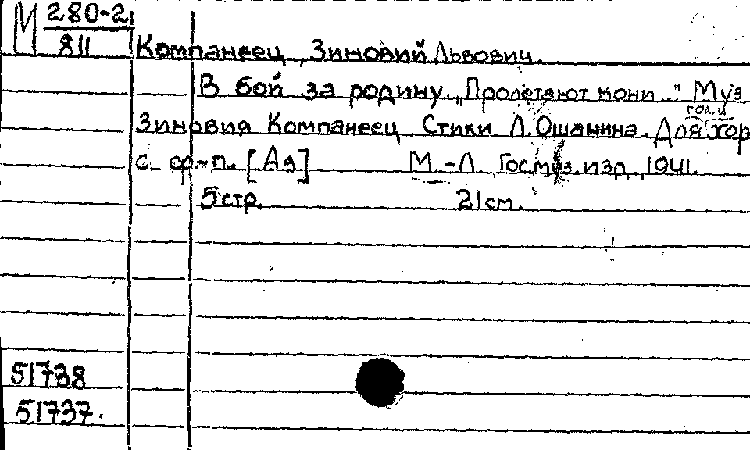 М 280-2
811
Компанеец, Зиновий Львович.
В бой за родину. „Пролетают кони..." Муз
Зиновия Компанеец. Стихи Л. Ошанина. Для хор
с ф.-п. [Ая]
М.-Л. Госмуз.изд, 1941.
5 стр.
21 см.
51738
51737.